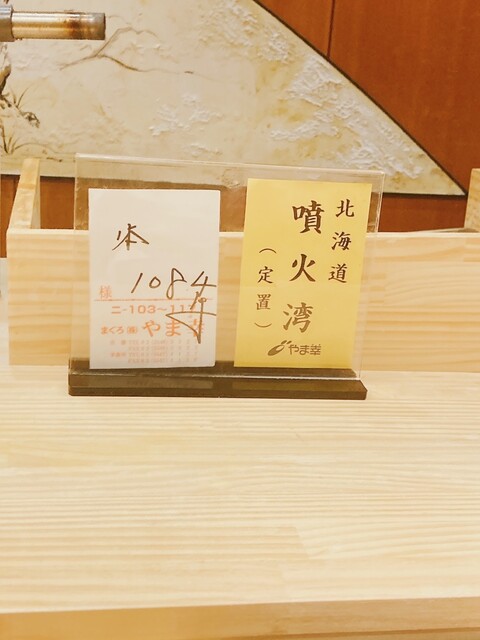 本
1084
様
ニ-103~117
まぐろ(株)やま幸
北海道
噴火湾
(定置)
やま幸